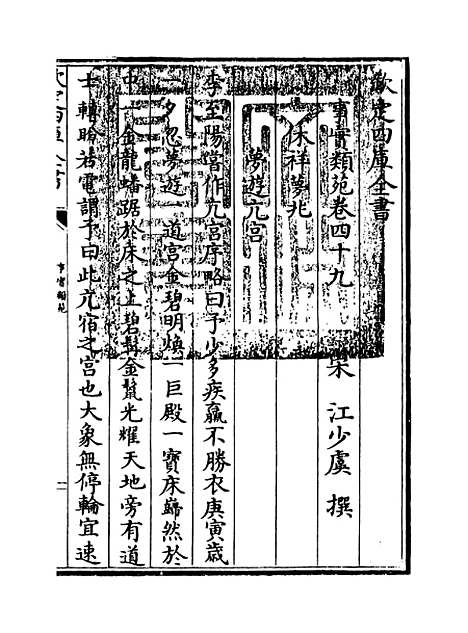 欽定四庫全書
事實類苑卷四十九　宋　江少虞　撰
休祥夢兆
夢遊亢宮
李至陽嘗作亢宮序略曰予少多疾羸不勝衣庚寅歲
一夕忽夢遊一道宮金碧明煥一巨殿一寶床巋然於
中一金龍蟠踞於床之上碧髯金鬣光耀天地旁有道
士轉盼若電謂予曰此亢宿之宮也大象無停輪宜速
事實類苑
一